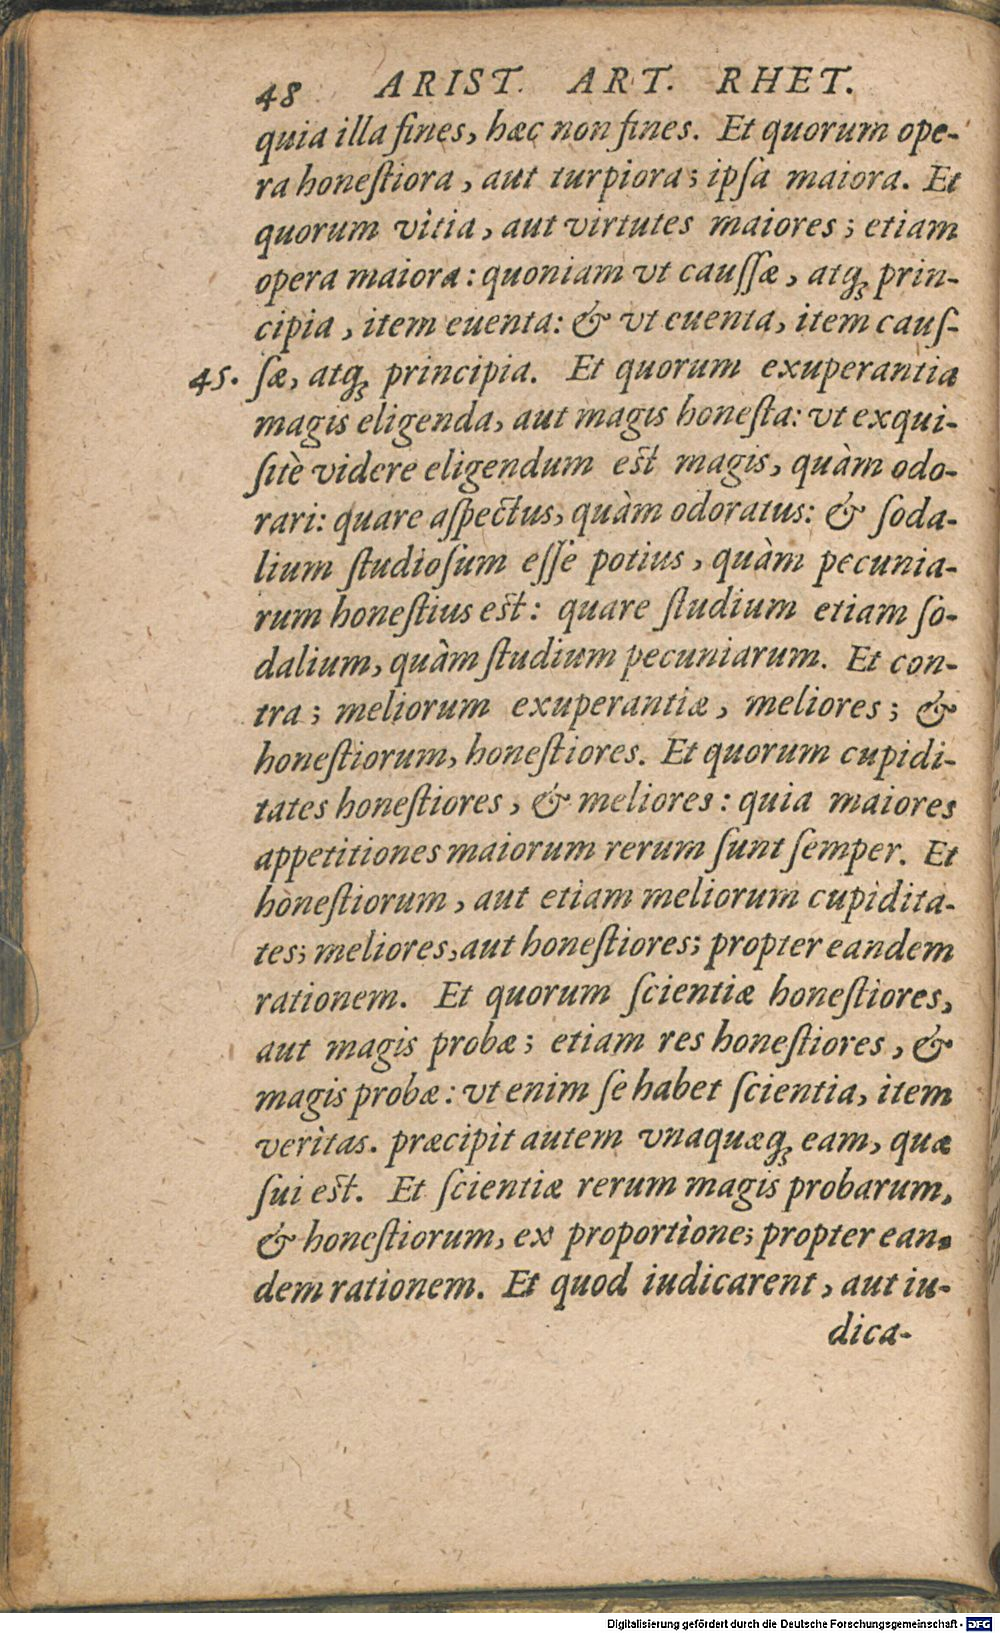 48 ARIST. ART. RHET.
quia illa fines, hæc non fines. Et quorum ope-
ra honeſtiora, aut turpiora; ipſa maiora. Et
quorum vitia, aut virtutes maiores; etiam
opera maiora: quoniam vt cauſſæ, atq; prin-
cipia, item euenta: & vt euenta, item cauſ-
45. ſæ, atq; principia. Et quorum exuperantia
magis eligenda, aut magis honeſta: vt exqui-
ſitè videre eligendum eſt magis, quàm odo-
rari: quare aſpectus, quàm odoratus: & ſoda-
lium ſtudioſum eſſe potius, quàm pecunia-
rum honeſtius eſt: quare ſtudium etiam ſo-
dalium, quàm ſtudium pecuniarum. Et con-
tra; meliorum exuperantiæ, meliores; &
honeſtiorum, honeſtiores. Et quorum cupidi-
tates honeſtiores, & meliores: quia maiores
appetitiones maiorum rerum ſunt ſemper. Et
honeſtiorum, aut etiam meliorum cupidita-
tes; meliores, aut honeſtiores; propter eandem
rationem. Et quorum ſcientiæ honeſtiores,
aut magis probæ; etiam res honeſtiores, &
magis probæ: vt enim ſe habet ſcientia, item
veritas. præcipit autem vnaquæq; eam, quæ
ſui eſt. Et ſcientiæ rerum magis probarum,
& honeſtiorum, ex proportione; propter ean-
dem rationem. Et quod iudicarent, aut iu-
dica-
Digitalisierung gefördert durch die Deutsche Forschungsgemeinschaft - DFG